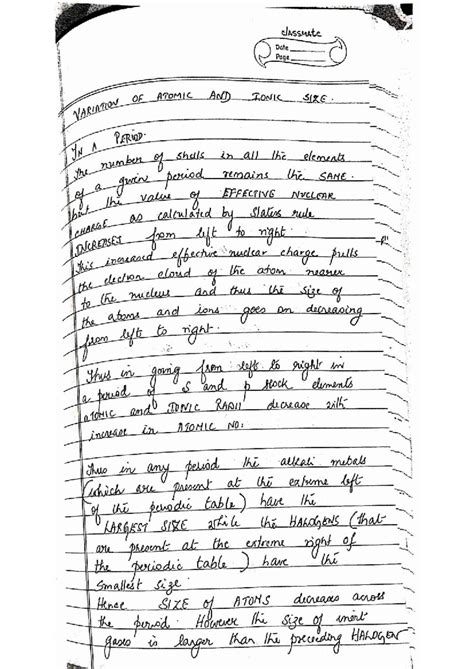 classmate
Date
Page
VARIATION OF ATOMIC AND IONIC SIZE.
IN A PERIOD.
The number of shells in all the elements
of a given period remains the SAME.
but the value of EFFECTIVE NUCLEAR
CHARGE as calculated by Slaters rule
INCREASES from left to right.
This increased effective nuclear charge pulls
the electron cloud of the atom nearer
to the nucleus and thus the size of
the atoms and ions goes on decreasing
from left to right.
Thus in going from left to right in
a period of S and p block elements
ATOMIC and IONIC RADII decrease with
increase in ATOMIC NO:
Thus in any period the alkali metals
(which are present at the extreme left
of the periodic table) have the
LARGEST SIZE while the HALOGENS (that
are present at the extreme right of
the periodic table) have the
smallest size.
Hence SIZE OF ATOMS decreases across
the period. However the size of inert
gases is larger than the preceeding HALOGEN